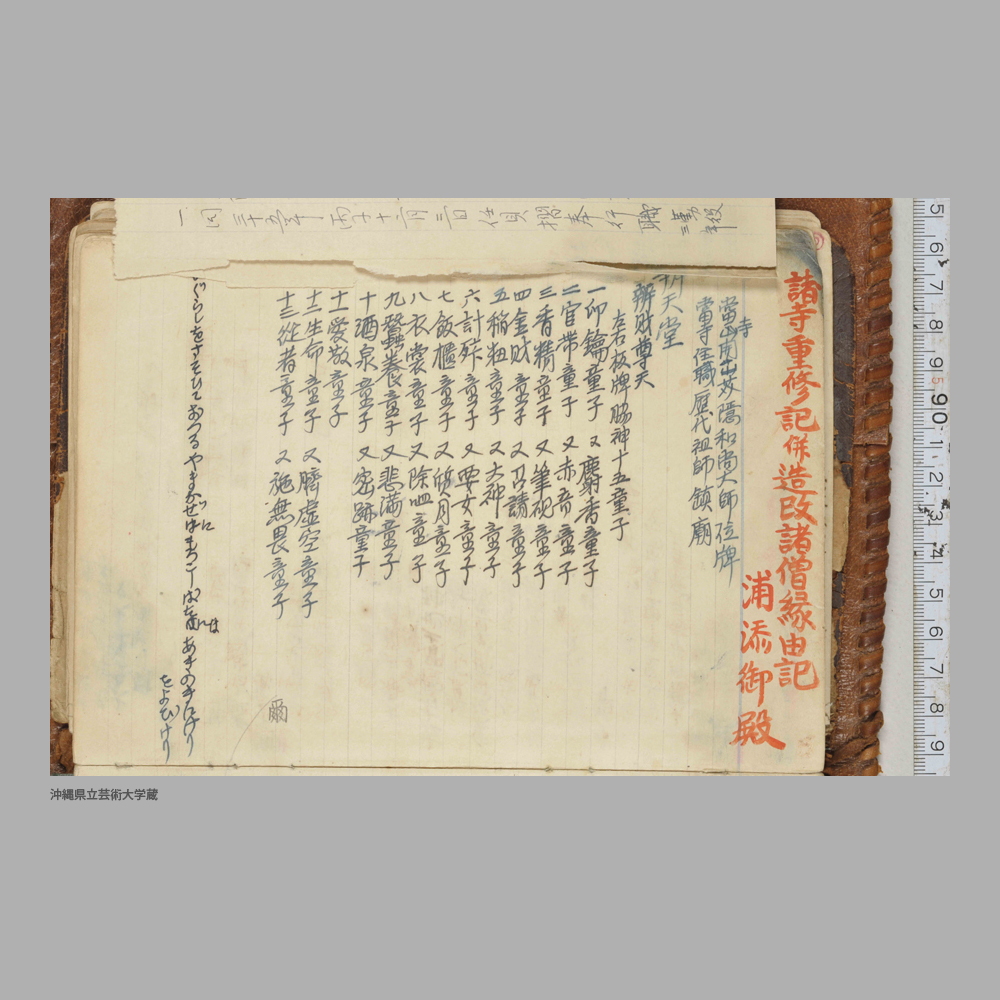 一 同 三十五年 丙子 十二月 三日 任貝摺奉行職
諸寺重修記併造改諸僧縁由記
浦添御殿
當山開山芥隠和尚大師位牌
寺
當寺住職歴代祖師鎮廟
天堂
辧財尊天
左右板牌脇神十五童子
一印鑰童子 又麝香童子
二官帯童子 又赤音童子
三香精童子 又筆硯童子
四金財童子 又召請童子
五稲籾童子 又大神童子
六計舛童子 又要女童子
七飯櫃童子 又質月童子
八衣裳童子 又除皿童子
九蠶養童子 又悲満童子
十酒泉童子 又密跡童子
十一愛敬童子
十二生命童子 又臍虚空童子
十三從者童子 又施無畏童子
爾
ぐらしをさそひておつるやまかぜは
あきのかたよりをよびけり
沖縄県立芸術大学蔵